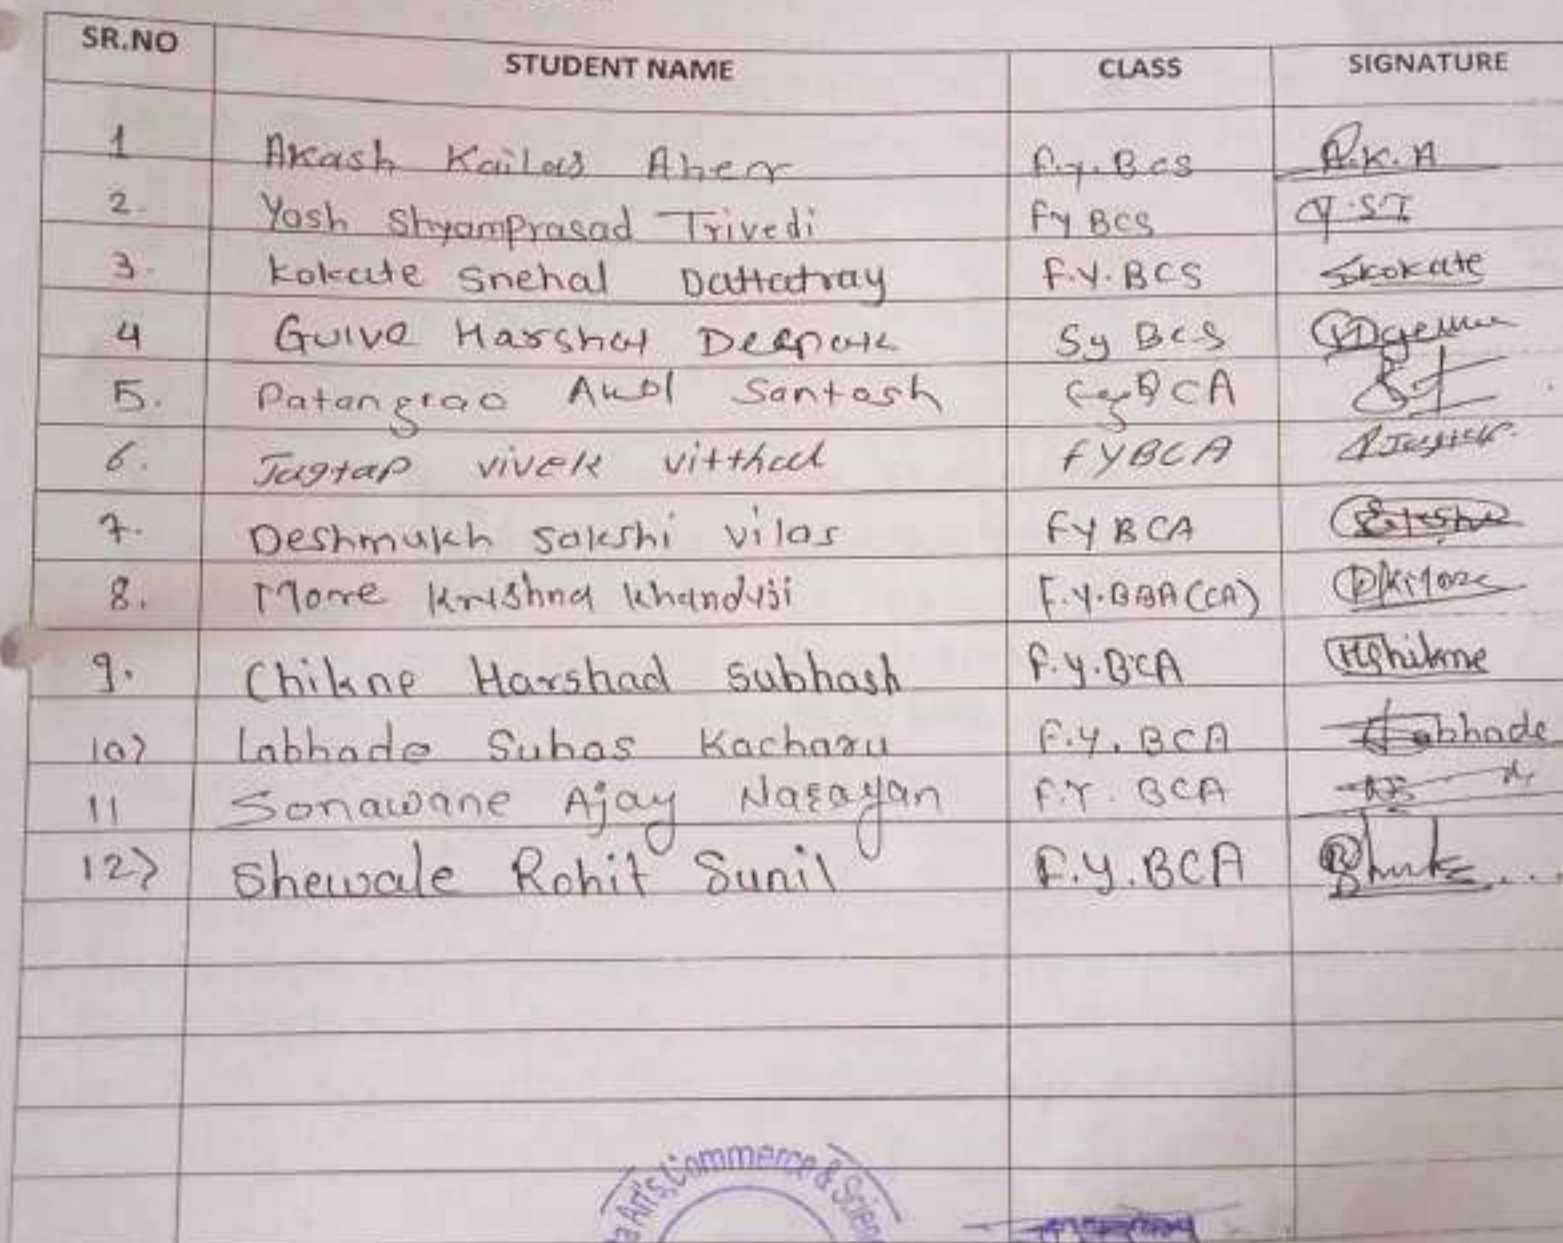 SR.NO STUDENT NAME CLASS SIGNATURE
1 Akash Kailas Aher F.Y.BCS A.K.A
2. Yash Shyamprasad Trivedi FY BCS Y.ST
3. Kokate Snehal Dattatray F.Y.BCS Skokate
4 Gulve Harshal Deepak Sy BCS
5. Patangrao Amol Santosh FyBCA
6. Jagtap vivek vitthal FYBCA
7. Deshmukh sakshi vilas FY BCA
8. More Krishna Khanduji F.Y.BBA(CA)
9. Chikne Harshad Subhash F.Y.BCA HChikne
10) Labhade Suhas Kacharu F.Y. BCA Labhade
11 Sonawane Ajay Narayan F.Y. BCA
12) Shewale Rohit Sunil F.Y.BCA
Art's, Commerce & Scien